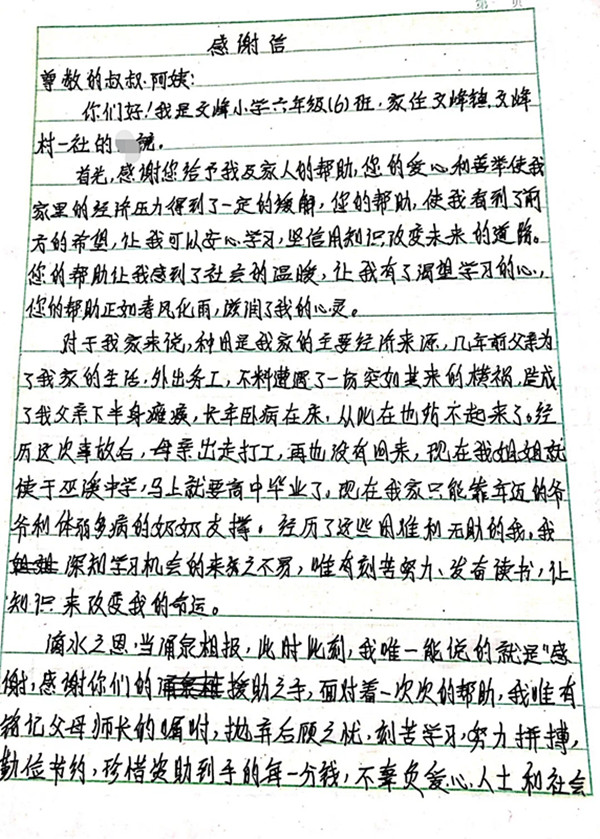 第 页
感谢信
尊敬的叔叔、阿姨：
你们好！我是文峰小学六年级(6)班，家住文峰镇文峰
村一社的
首先，感谢您给予我及家人的帮助，您的爱心和善举使我
家里的经济压力得到了一定的缓解，您的帮助，使我看到了前
方的希望，让我可以安心学习，坚信用知识改变未来的道路。
您的帮助让我感到了社会的温暖，让我有了渴望学习的心，
你的帮助正如春风化雨，滋润了我的心灵。
对于我家来说，种田是我家的主要经济来源，几年前父亲为
了我家的生活，外出务工，不料遭遇了一场突如其来的横祸，造成
了我父亲下半身瘫痪，长年卧病在床，从此在也站不起来了。经
历这次事故后，母亲出走打工，再也没有回来，现在我姐姐就
读于巫溪中学，马上就要高中毕业了。现在我家只能靠年迈的爷
爷和体弱多病的奶奶支撑。经历了这些困难和无助的我，我
深知学习机会的来之不易，唯有刻苦努力、发奋读书，让
知识来改变我的命运。
滴水之恩，当涌泉相报，此时此刻，我唯一能说的就是“感
谢，感谢你们的援助之手，面对着一次次的帮助，我唯有
铭记父母师长的嘱咐，抛弃后顾之忧，刻苦学习，努力拼搏，
勤俭节约，珍惜资助到手的每一分钱，不辜负爱心人士和社会